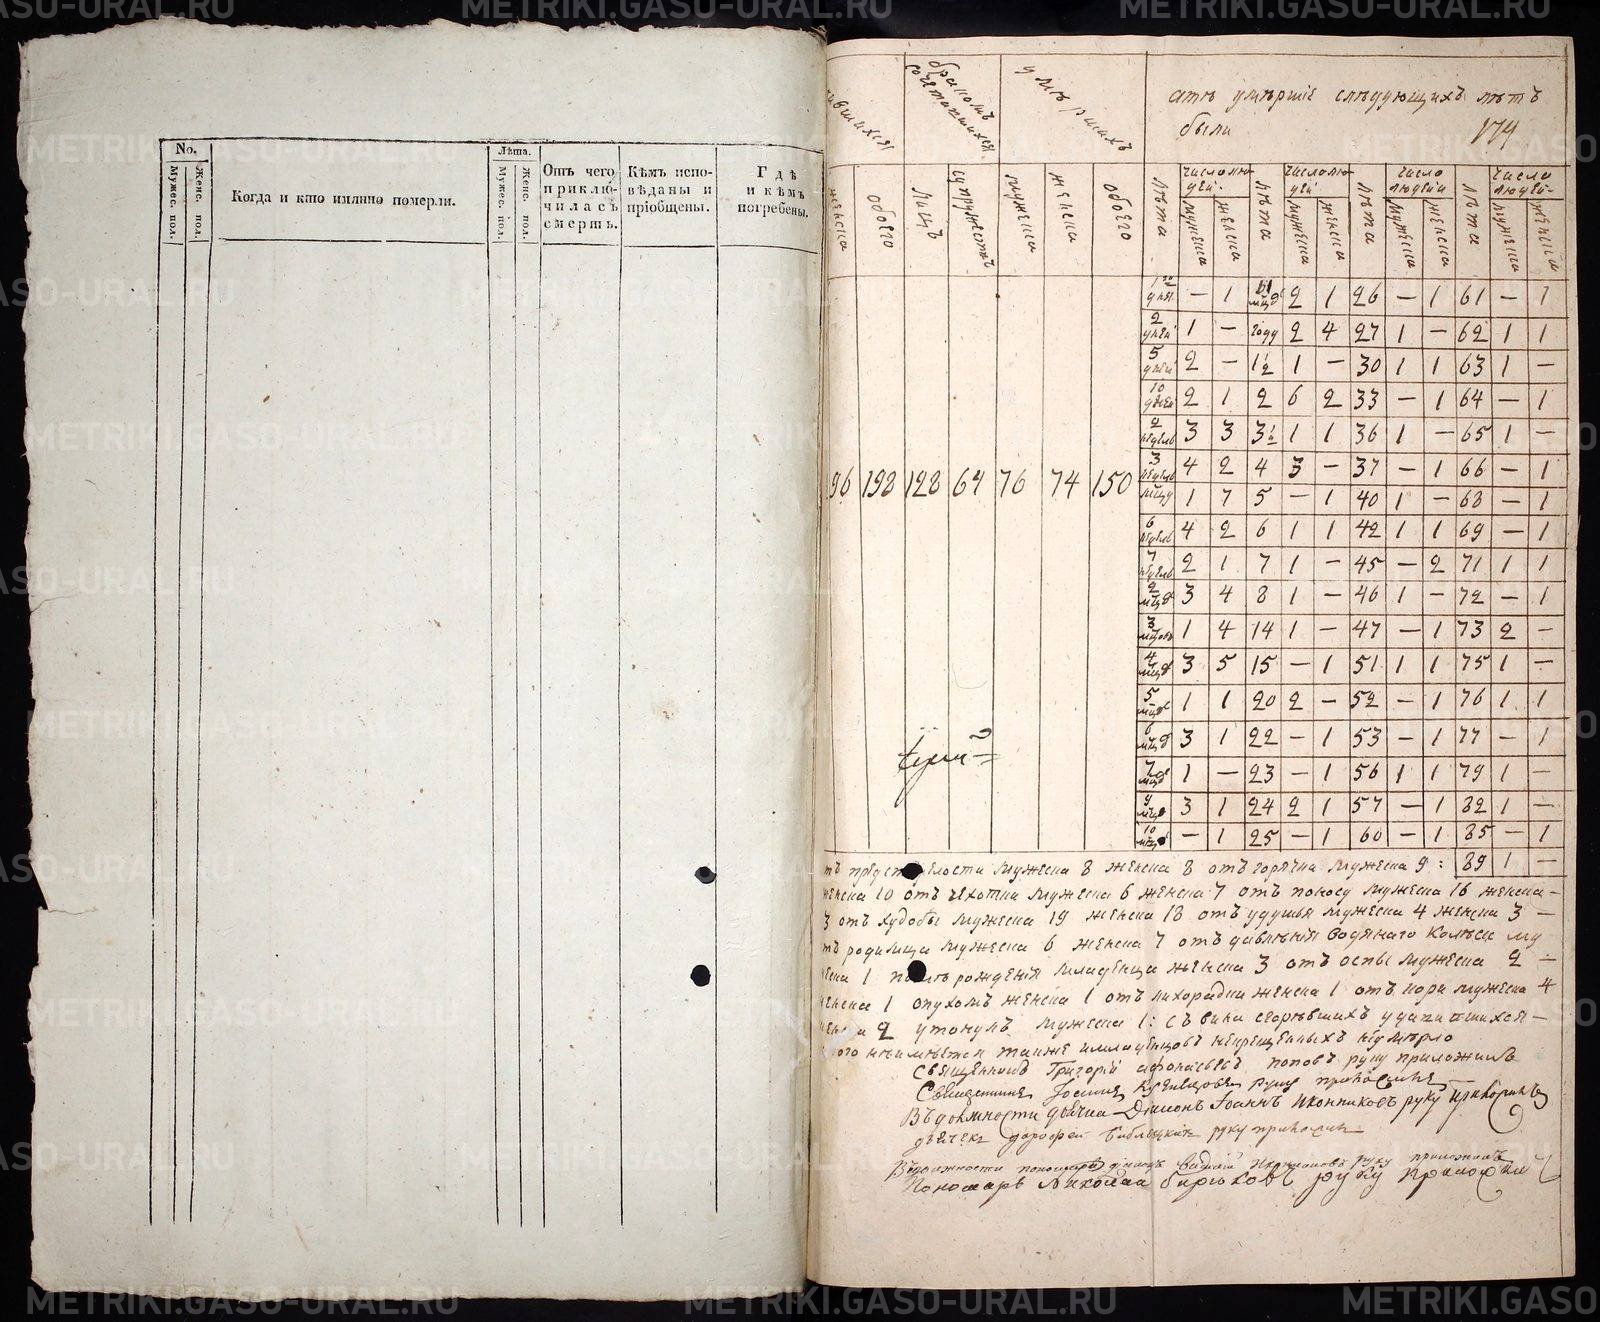 No.
Мужес. пол.
Женс. пол.
Когда и кто имянно померли.
Лѣта.
Мужес. пол.
Женс. пол.
Отъ чего
приклю-
чилась
смерть.
Кѣмъ испо-
вѣданы и
пріобщены.
Гдѣ
и кѣмъ
погребены.
бракомъ
сочетавшихся
умершихъ
женска
обоего
лицъ
супружествъ
мужеска
женска
обоего
96 198 128 64 76 74 150
атѣ умѣршіе слѣдующихъ лѣтъ
были
174
лѣта число людей мужеска женска лѣта число людей мужеска женска лѣта число людей мужеска женска лѣта число людей мужеска женска
дня — 1 2 1 26 — 1 61 — 1
2 дней 1 — году 2 4 27 1 — 62 1 1
5 дней 2 — 1½ 1 — 30 1 1 63 1 —
10 дней 2 1 2 6 2 33 — 1 64 — 1
2 недель 3 3 3½ 1 1 36 1 — 65 1 —
3 недель 4 2 4 3 — 37 — 1 66 — 1
мцу 1 7 5 — 1 40 1 — 68 — 1
6 недель 4 2 6 1 1 42 1 1 69 — 1
7 недель 2 1 7 1 — 45 — 2 71 1 1
2 мцъ 3 4 8 1 — 46 1 — 72 — 1
3 мцовъ 1 4 14 1 — 47 — 1 73 2 —
4 мцъ 3 5 15 — 1 51 1 1 75 1 —
5 мцъ 1 1 20 2 — 52 — 1 76 1 1
6 мцъ 3 1 22 — 1 53 — 1 77 — 1
7 мцъ 1 — 23 — 1 56 1 1 79 1 —
9 мцъ 3 1 24 2 1 57 — 1 82 1 —
10 мцъ — 1 25 — 1 60 — 1 85 — 1
89 1 —
мужеска 8 женска 8 отъ горячки мужеска 9:
женска 10 отъ чехотки мужеска 6 женска 7 отъ поносу мужеска 16 женска —
3 отъ худобы мужеска 19 женска 18 отъ удушья мужеска 4 женска 3 —
родимца мужеска 6 женска 7 отъ давленія водянаго колѣса му
1 рожденія младенца женска 3 отъ оспы мужеска 2 —
женска 1 опухолъ женска 1 отъ лихорадки женска 1 отъ кори мужеска 4
2 утонулъ мужеска 1: съ вина сгорѣвшихъ удавившихся —
неимѣется также и младенцовъ некрещенныхъ неумѣрло
Священникъ Григорій Афонасьевъ Поповъ руку приложилъ
Священникъ Іоаннъ руку приложилъ
Въ должности дьячка Діаконъ Іоаннъ Иконниковъ руку приложилъ
дьячекъ Дорофей руку приложилъ
Въ должности пономаря руку приложилъ
Пономарь Николай Бирюковъ руку приложилъ
METRIKI.GASO-URAL.RU